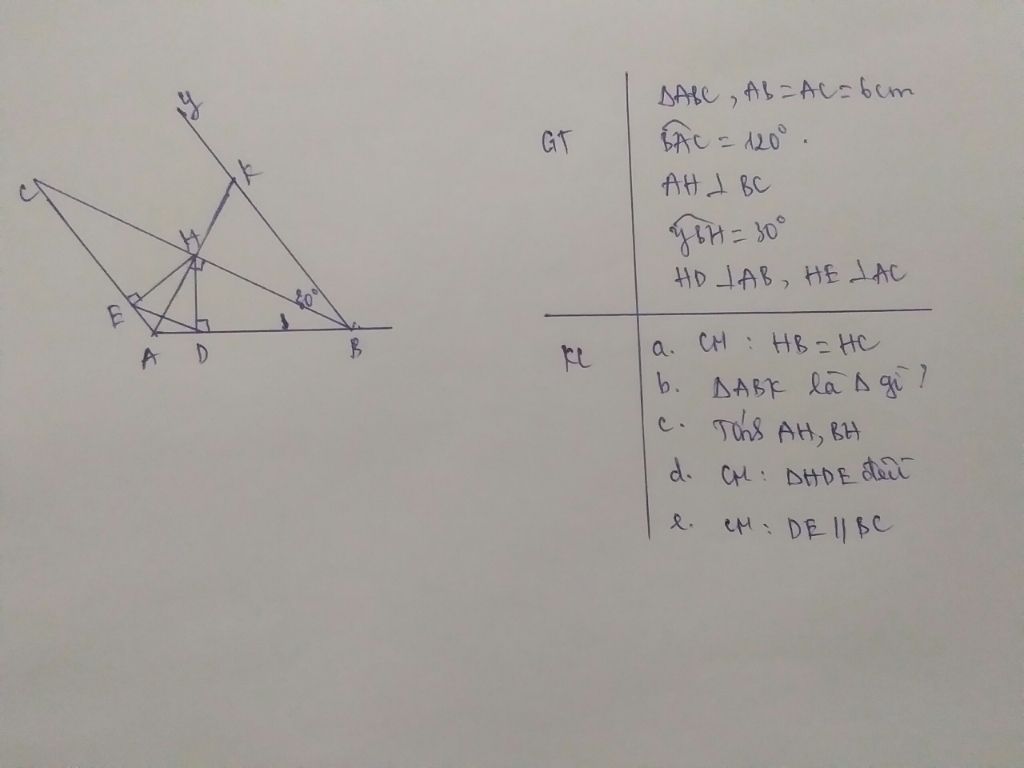 y
C
K
H
30°
E
A
D
B
GT
ΔABC, AB = AC = 6cm
BAC = 120°.
AH ⊥ BC
yBH = 30°
HD ⊥ AB, HE ⊥ AC
KL
a. CH : HB = HC
b. ΔABK là Δ gì ?
c. Tính AH, BH
d. CM : ΔHDE đều
e. CM : DE // BC